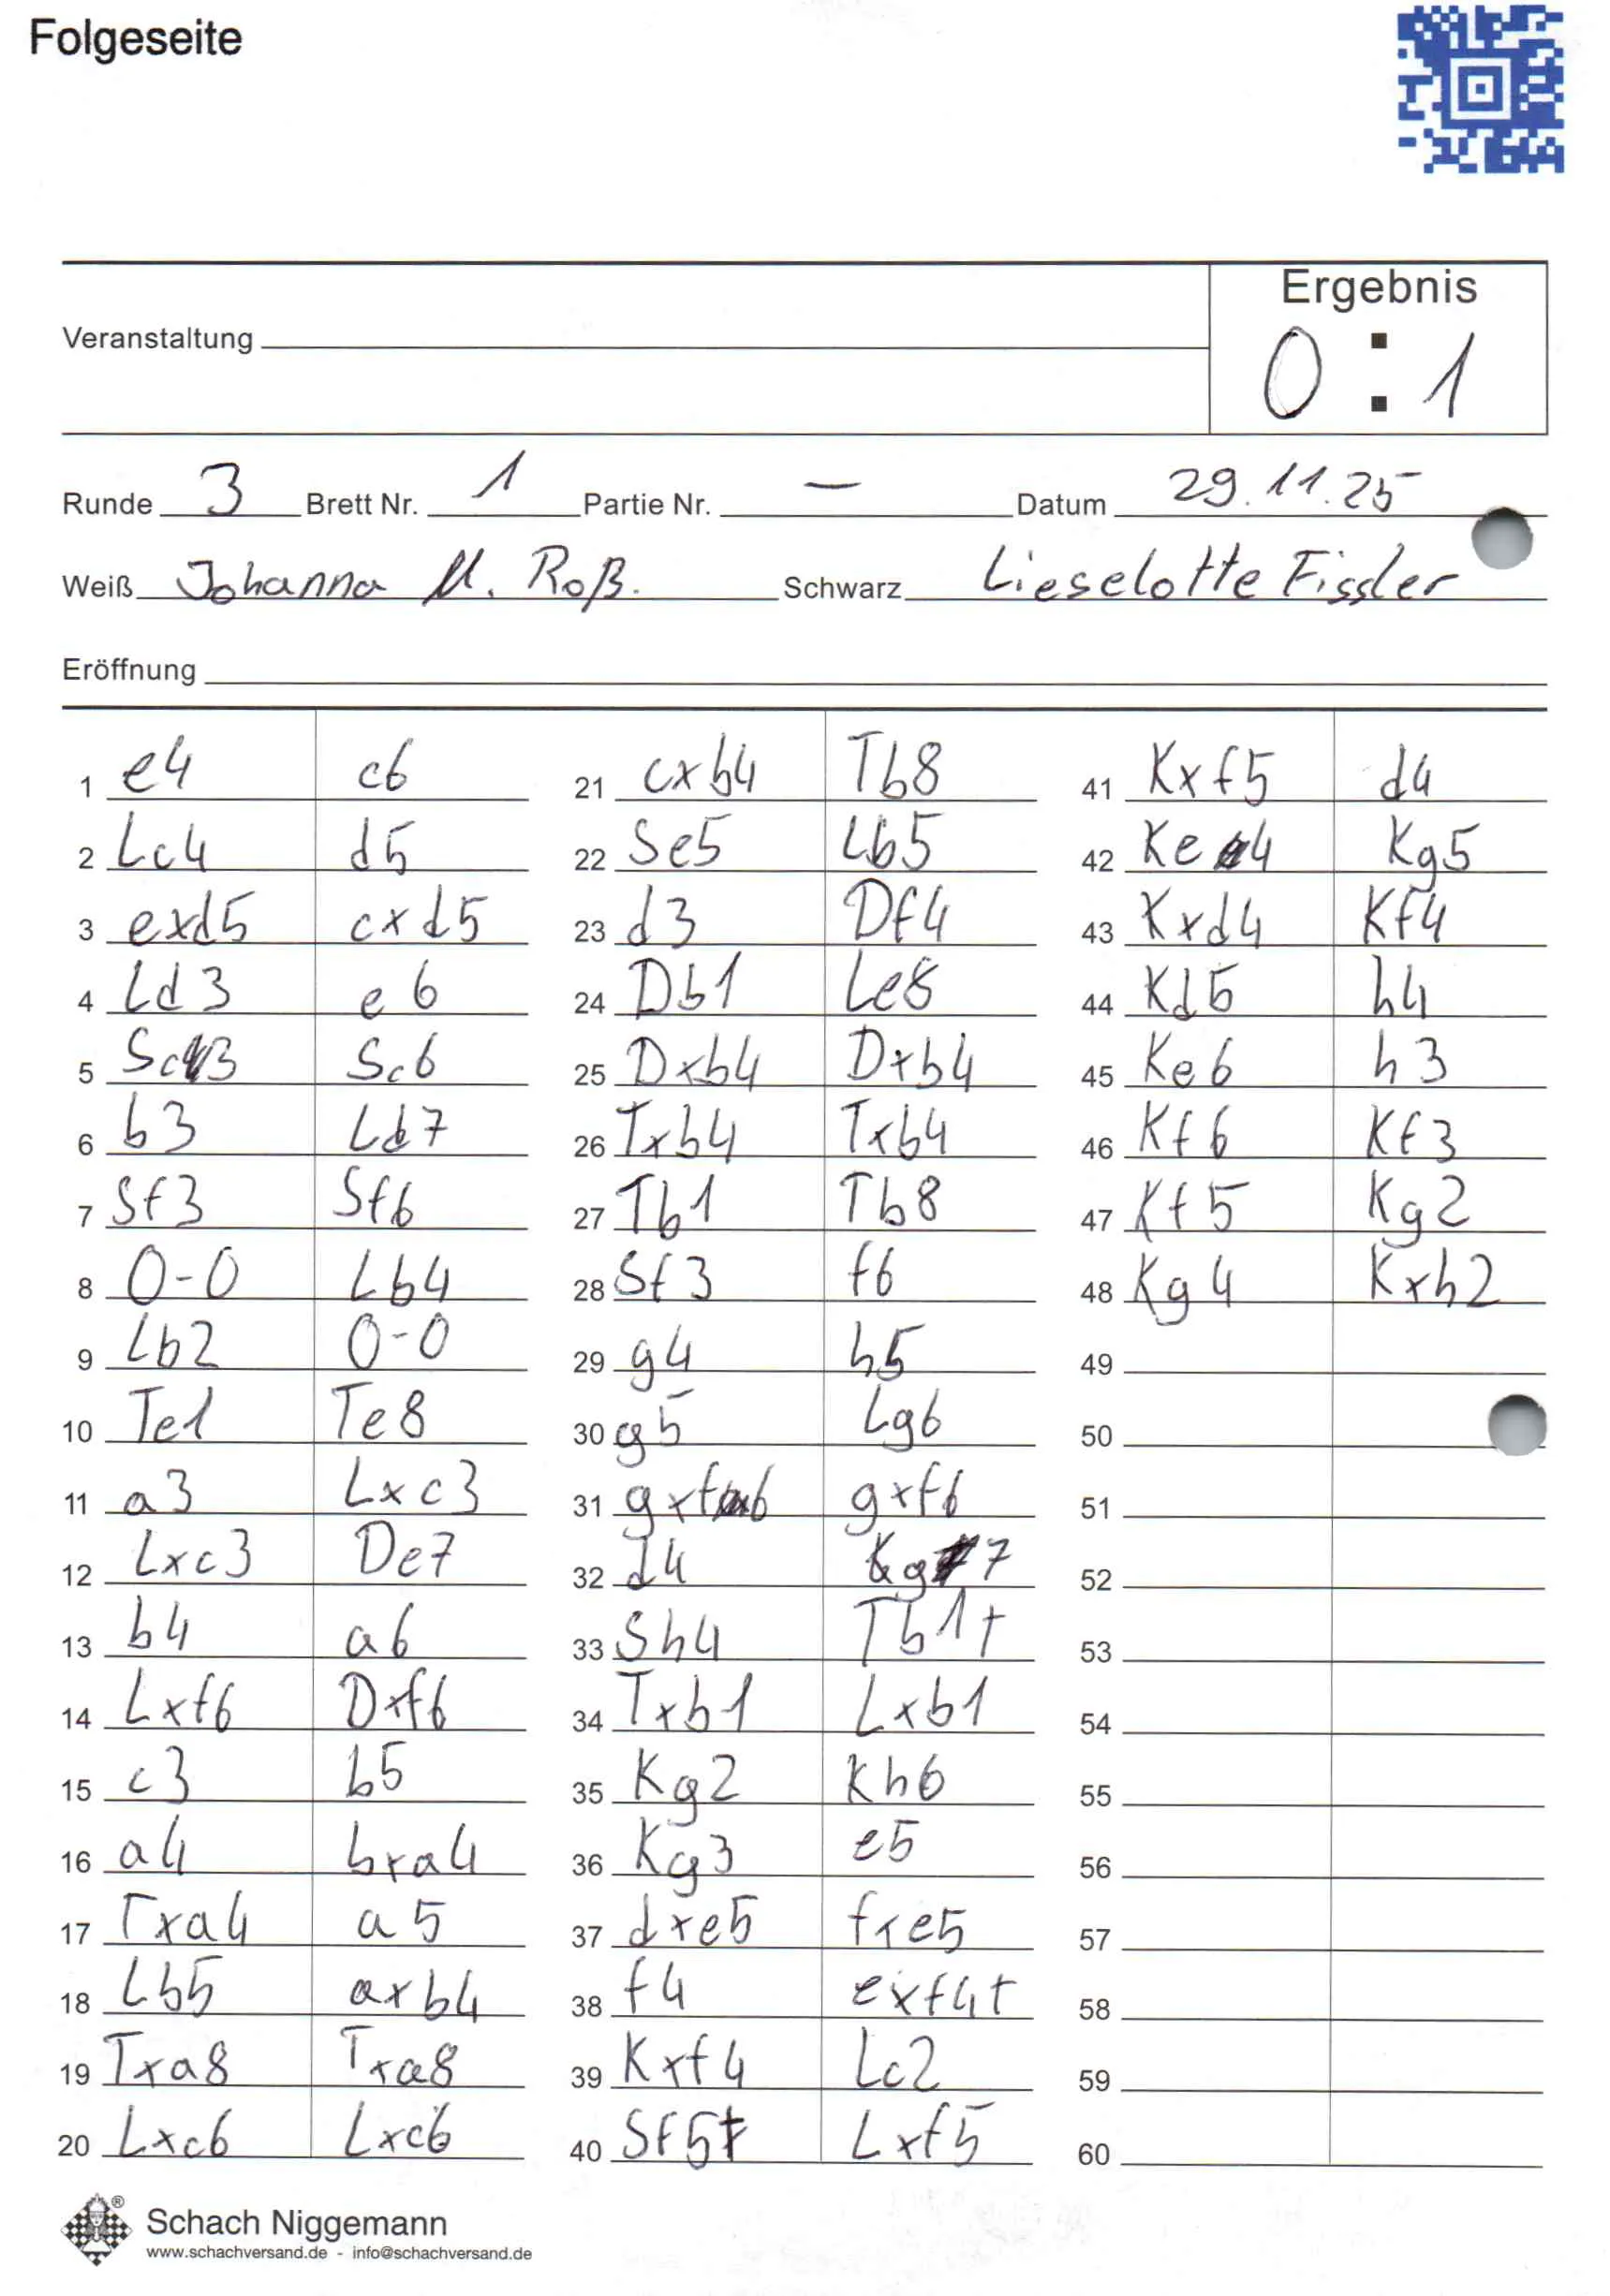 Folgeseite
Ergebnis
Veranstaltung
0 : 1
Runde 3 Brett Nr. 1 Partie Nr. — Datum 29.11.25
Weiß Johanna M. Roß. Schwarz Lieselotte Fissler
Eröffnung
1 e4 c6
2 Lc4 d5
3 exd5 cxd5
4 Ld3 e6
5 Sc3 Sc6
6 b3 Ld7
7 Sf3 Sf6
8 0-0 Lb4
9 Lb2 0-0
10 Te1 Te8
11 a3 Lxc3
12 Lxc3 De7
13 b4 a6
14 Lxf6 Dxf6
15 c3 b5
16 a4 bxa4
17 Txa4 a5
18 Lb5 axb4
19 Txa8 Txa8
20 Lxc6 Lxc6
21 cxb4 Tb8
22 Se5 Lb5
23 d3 Df4
24 Db1 Le8
25 Dxb4 Dxb4
26 Txb4 Txb4
27 Tb1 Tb8
28 Sf3 f6
29 g4 h5
30 g5 Lg6
31 gxf6 gxf6
32 d4 Kg7
33 Sh4 Tb1+
34 Txb1 Lxb1
35 Kg2 Kh6
36 Kg3 e5
37 dxe5 fxe5
38 f4 exf4+
39 Kxf4 Lc2
40 Sf5+ Lxf5
41 Kxf5 d4
42 Ke4 Kg5
43 Kxd4 Kf4
44 Kd5 h4
45 Ke6 h3
46 Kf6 Kf3
47 Kf5 Kg2
48 Kg4 Kxh2
49
50
51
52
53
54
55
56
57
58
59
60
Schach Niggemann
www.schachversand.de - info@schachversand.de